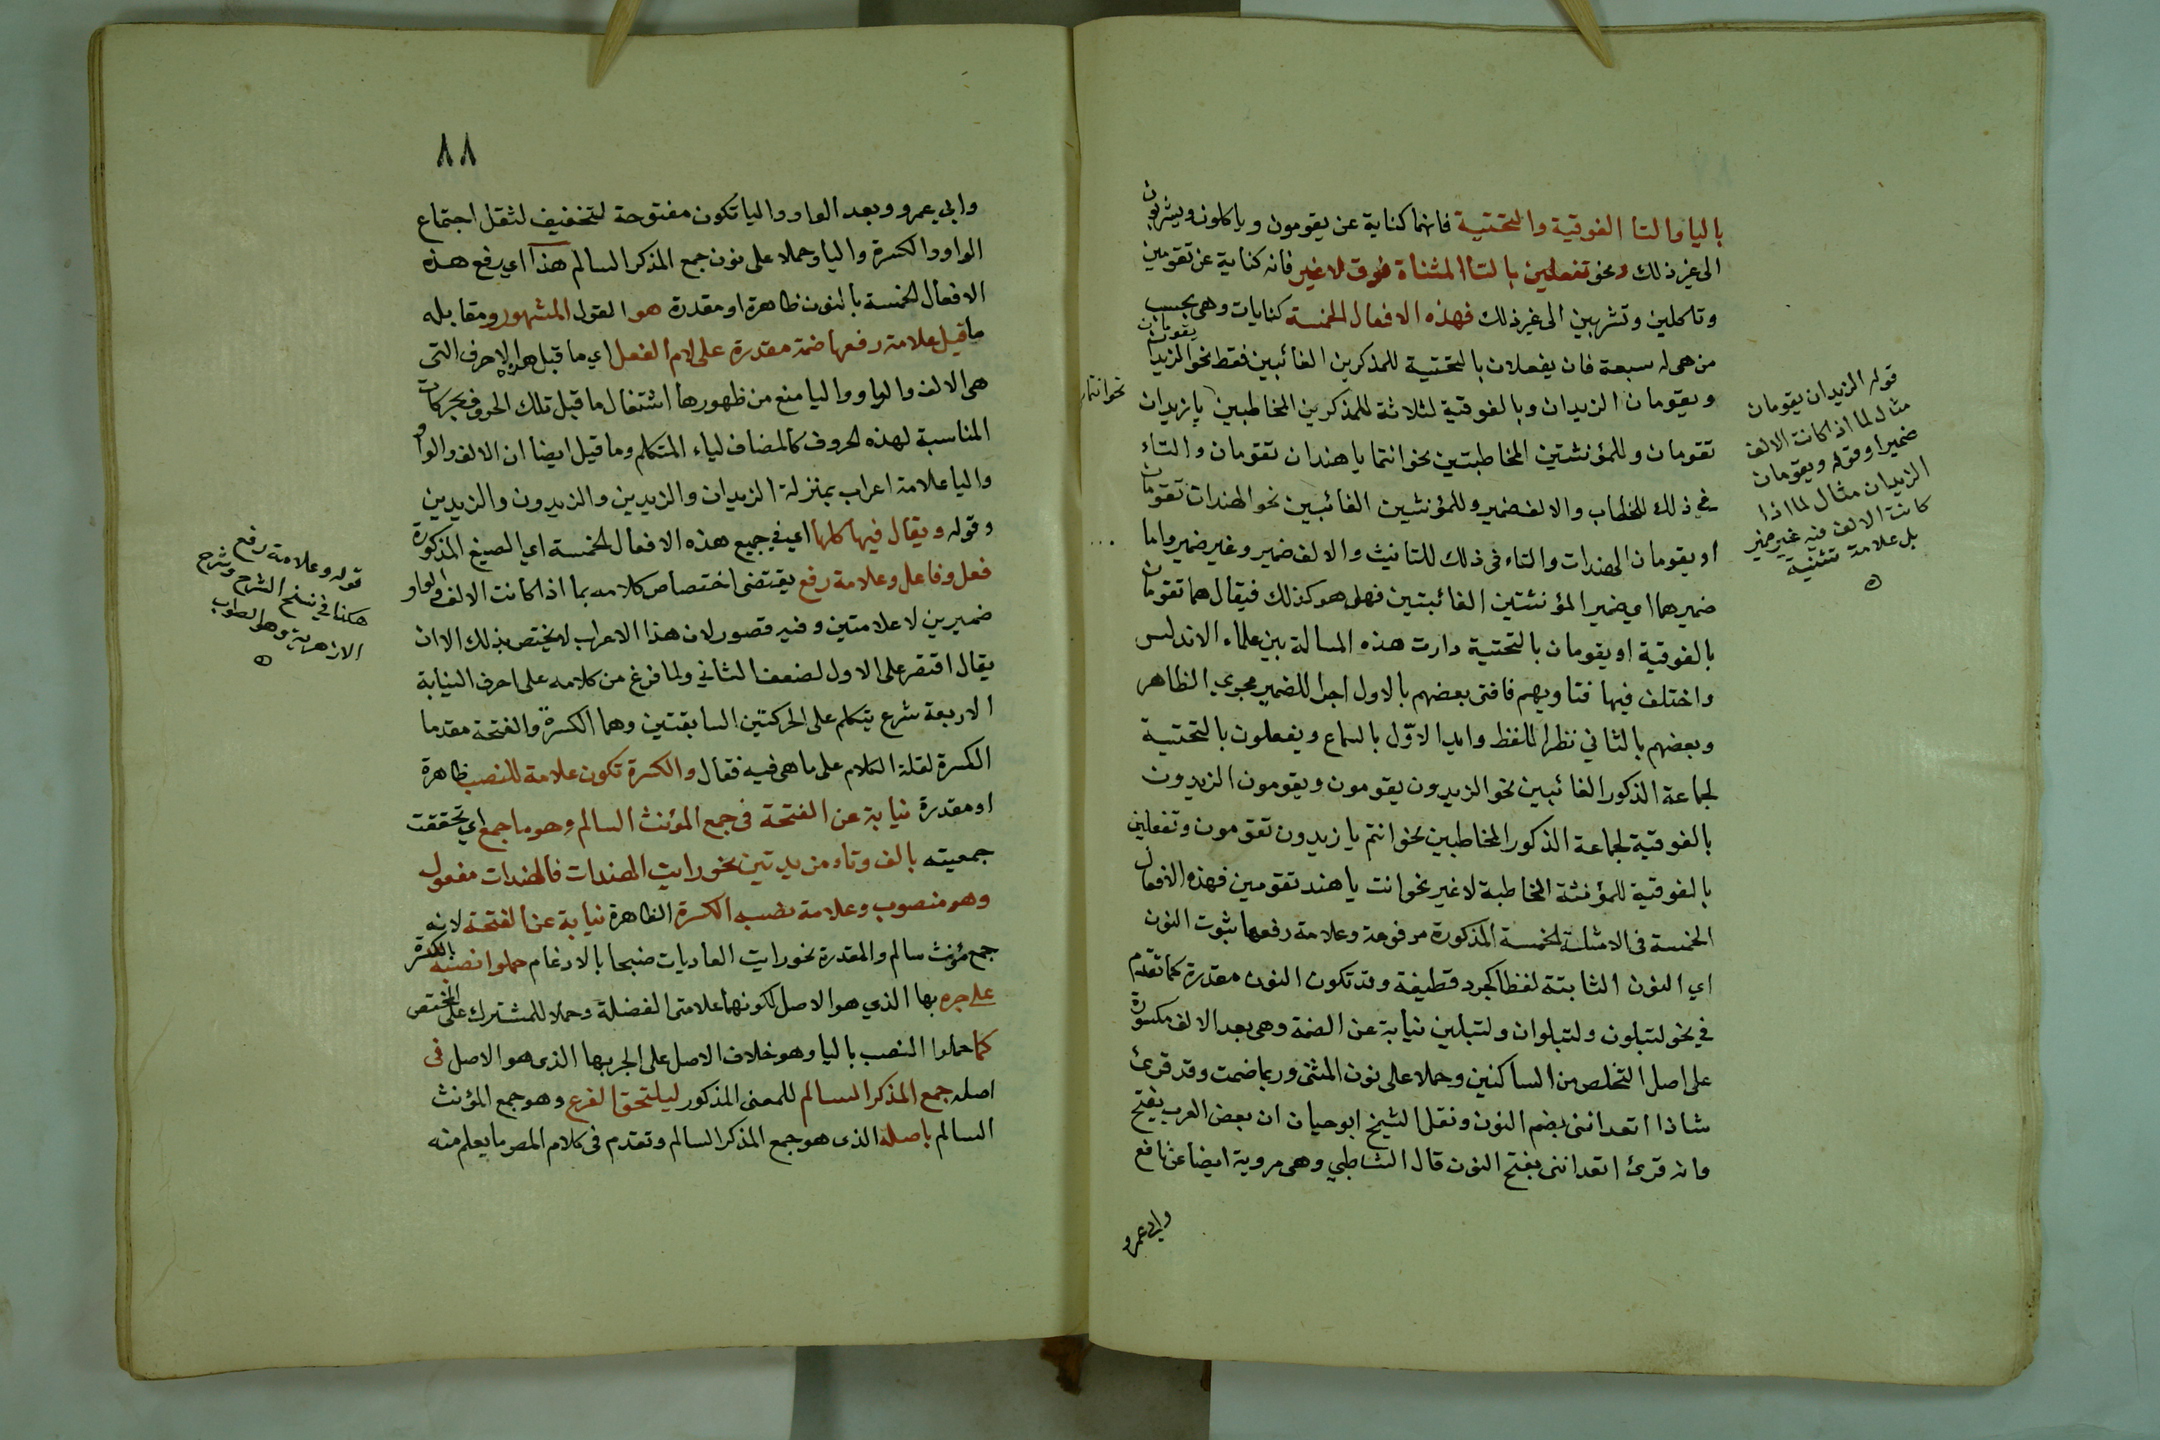 باليا والتا الفوقية والتحتية فانهما كناية عن يقومون وياكلون ويشربون
الى غير ذلك ونحو تفعلين بالتا المثناة فوق لا غير فانه كناية عن تقومين
وتاكلين وتشربين الى غير ذلك فهذه الافعال الخمسة كنايات وهي بحسب
من هي له سبعة فان يفعلان بالتحتية للمذكرين الغائبين فقط نحو الزيدان يقومان
ويقومان الزيدان وبالفوقية لثلاثة للمذكرين المخاطبين نحو انتما يا زيدان
تقومان وللمؤنثتين المخاطبتين نحو انتما يا هندان تقومان والتاء
في ذلك للخطاب والالف ضمير وللمؤنثتين الغائبين نحو الهندات تقومان
او يقومان الهندات والتاء في ذلك للتانيث والالف ضمير وغير ضمير واما
ضميرهما اي ضمير المؤنثتين الغائبتين فهل هو كذلك فيقال هما تقومان
بالفوقية او يقومان بالتحتية دارت هذه المسالة بين علماء الاندلس
واختلف فيها فتاويهم فافتى بعضهم بالاول اجرا للضمير مجرى الظاهر
وبعضهم بالثاني نظرا للفظ وايد الاوّل بالسماع ويفعلون بالتحتية
لجماعة الذكور الغائبين نحو الزيدون يقومون ويقومون الزيدون
بالفوقية لجماعة الذكور المخاطبين نحو انتم يا زيدون تقومون وتفعلين
بالفوقية للمؤنثة المخاطبة لا غير نحو انت يا هند تقومين فهذه الافعال
الخمسة في الامثلة الخمسة المذكورة مرفوعة وعلامة رفعها ثبوت النون
اي النون الثابتة لفظا كجرد قطيفة وقد تكون النون مقدرة كما تقدم
في نحو لتبلون ولتبلوان ولتبلين نيابة عن الضمة وهي بعد الالف مكسورة
على اصل التخلص من الساكنين وحملا على نون المثنى وربما ضمت وقد قرئ
شاذا اتعدانني بضم النون ونقل الشيخ ابو حيان ان بعض العرب يفتح
وانه قرئ اتعدانني بفتح النون قال الشاطبي وهي مروية ايضا عن نافع
وابي عمرو
قوله الزيدان يقومان
مثال لما اذا كانت الالف
ضميرا وقوله ويقومان
الزيدان مثال لما اذا
كانت الالف فيه غير ضمير
بل علامة تثنية
٨٨
وابي عمرو وبعد الواو واليا تكون مفتوحة لتخفيف لثقل اجتماع
الواو والكسرة واليا وحملا على نون جمع المذكر السالم هذا اي رفع هذه
الافعال الخمسة بالنون ظاهرة او مقدرة هو القول المشهور ومقابله
ما قيل علامة رفعها ضمة مقدرة على لام الفعل اي ما قبل هذه الاحرف التي
هي الالف والواو واليا منع من ظهورها اشتغال ما قبل تلك الحروف بحركات
المناسبة لهذه الحروف كالمضاف لياء المتكلم وما قيل ايضا ان الالف والواو
واليا علامة اعراب بمنزلة الزيدان والزيدين والزيدون والزيدين
وقوله ويقال فيها كلها اي في جميع هذه الافعال الخمسة اي الصيغ المذكورة
فعل وفاعل وعلامة رفع يقتضي اختصاص كلامه بما اذا كانت الالف والواو
ضميرين لا علامتين وفيه قصور لان هذا الاعراب لا يختص بذلك الا ان
يقال اقتصر على الاول لضعف الثاني ولما فرغ من كلامه على احرف النيابة
الاربعة شرع يتكلم على الحركتين السابقتين وهما الكسرة والفتحة مقدما
الكسرة لقلة الكلام على ما هي فيه فقال والكسرة تكون علامة للنصب ظاهرة
او مقدرة نيابة عن الفتحة في جمع المؤنث السالم وهو ما جمع اي تحققت
جمعيته بالف وتاء مزيدتين نحو رايت الهندات فالهندات مفعول
وهو منصوب وعلامة نصبه الكسرة الظاهرة نيابة عن الفتحة لانه
جمع مؤنث سالم والمقدرة نحو رايت العاديات ضبحا بالادغام حملوا نصبه بالكسرة
على جره بها الذي هو الاصل لكونهما علامتي الفضلة وحملا للمشترك على المختص
كما حملوا النصب باليا وهو خلاف الاصل على الجر بها الذي هو الاصل في
اصله جمع المذكر السالم للمعنى المذكور ليلتحق الفرع وهو جمع المؤنث
السالم باصله الذي هو جمع المذكر السالم وتقدم في كلام المص ما يعلم منه
قوله وعلامة رفع
هكذا في نسخ الشرح وشرح
الازهرية وهو الصواب